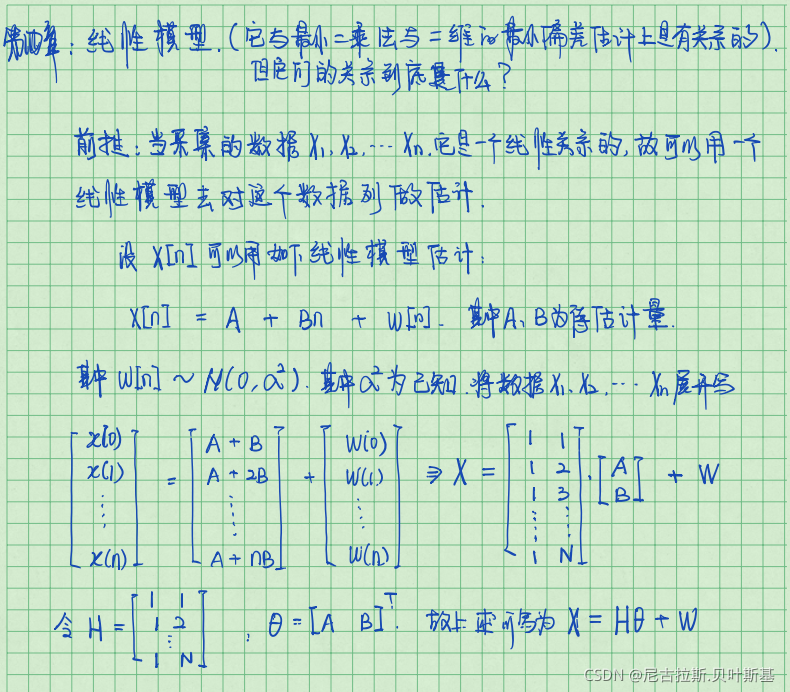 第四章：线性模型.(它与最小二乘法与二维的最小偏差估计上是有关系的).
但它们的关系到底是什么？
前提：当采集的数据 X₁, X₂, ⋯ Xn. 它是一个线性关系的, 故可以用一个
线性模型去对这个数据列做估计.
设 X[n] 可以用如下线性模型估计：
X[n] = A + Bn + W[n]. 其中A、B为待估计量.
其中 W[n] ~ N(0, α²). 其中α²为已知. 将数据 X₁, X₂, ⋯ Xn 展开写
[x(0) x(1) ⋮ x(n)] = [A + B A + 2B ⋮ A + nB] + [W(0) W(1) ⋮ W(n)] ⇒ X = [1 1 1 2 1 3 ⋮ ⋮ 1 N] · [A B] + W
令 H = [1 1 1 2 ⋮ 1 N], θ = [A B]ᵀ. 故上式可写为 X = Hθ + W
CSDN @尼古拉斯.贝叶斯基